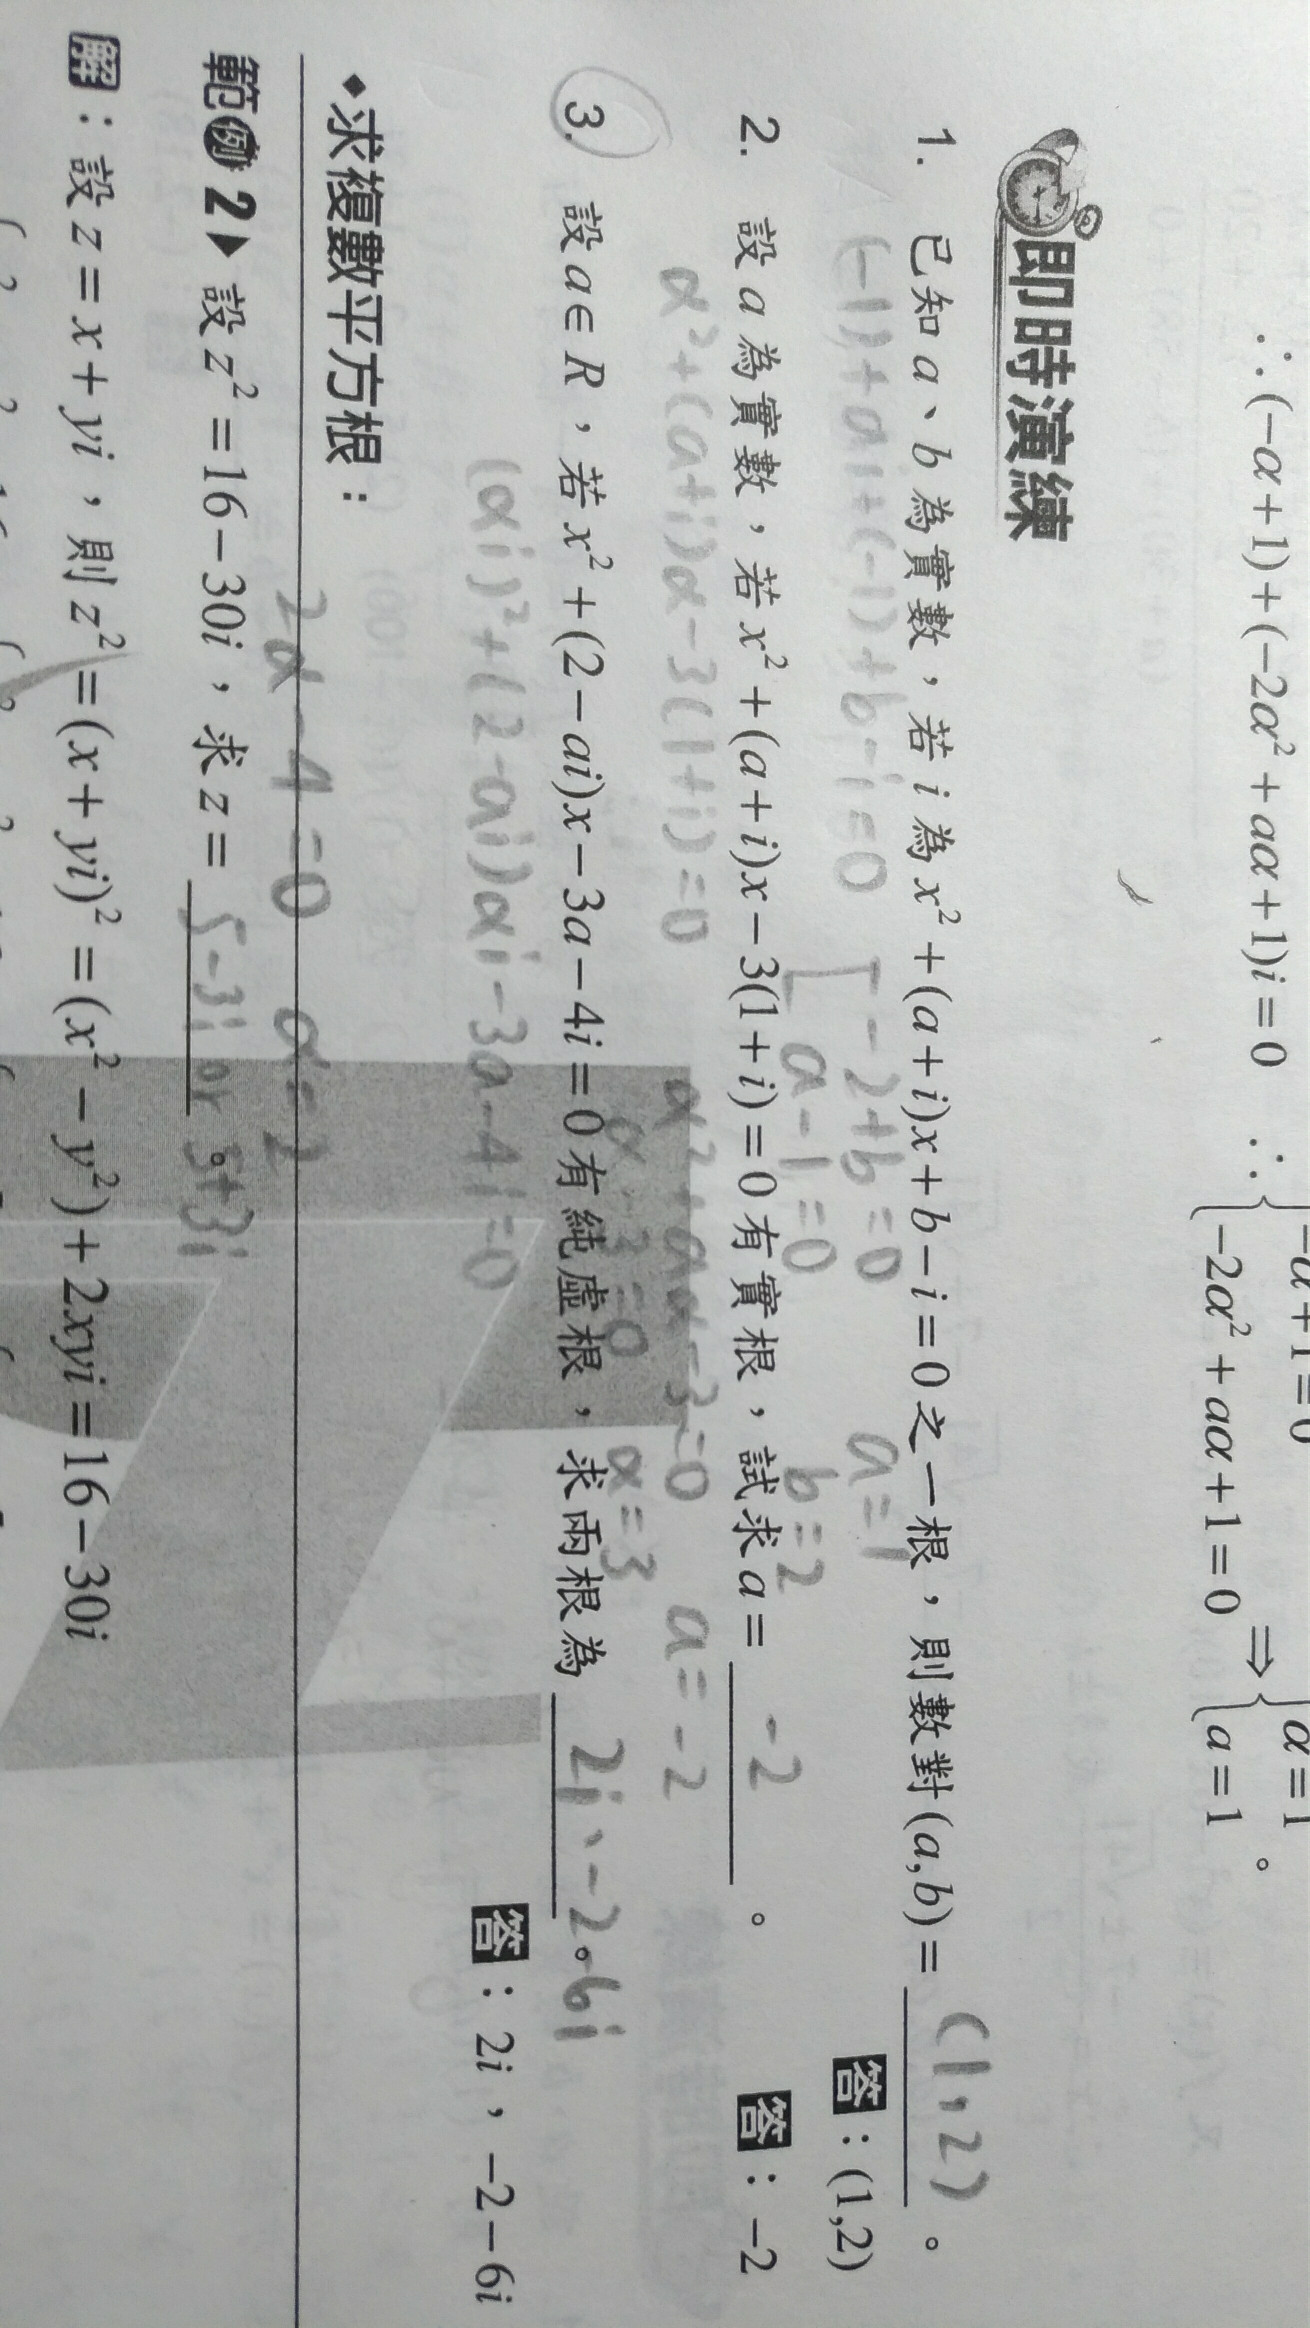 -α+1=0 α=1
∴(-α+1)+(-2α²+aα+1)i=0 ∴{-2α²+aα+1=0 ⇒{a=1 。
即時演練
1. 已知a、b為實數，若i為x²+(a+i)x+b-i=0之一根，則數對(a,b)= (1,2) 。
(-1)+ai+(-1)+b-i=0 -2+b=0 a=1 答：(1,2)
a-1=0 b=2
2. 設a為實數，若x²+(a+i)x-3(1+i)=0有實根，試求a= -2 。
α²+(a+i)α-3(1+i)=0 α²+aα-3=0 a=-2 答：-2
α-3=0 α=3
3. 設a∈R，若x²+(2-ai)x-3a-4i=0有純虛根，求兩根為 2i、-2-6i 。
(αi)²+(2-ai)αi-3a-4i=0 答：2i，-2-6i
◆求複數平方根：
2α-4=0 α=2
範例2▶ 設z²=16-30i，求z= 5-3i or 5+3i 。
解：設z=x+yi，則z²=(x+yi)²=(x²-y²)+2xyi=16-30i